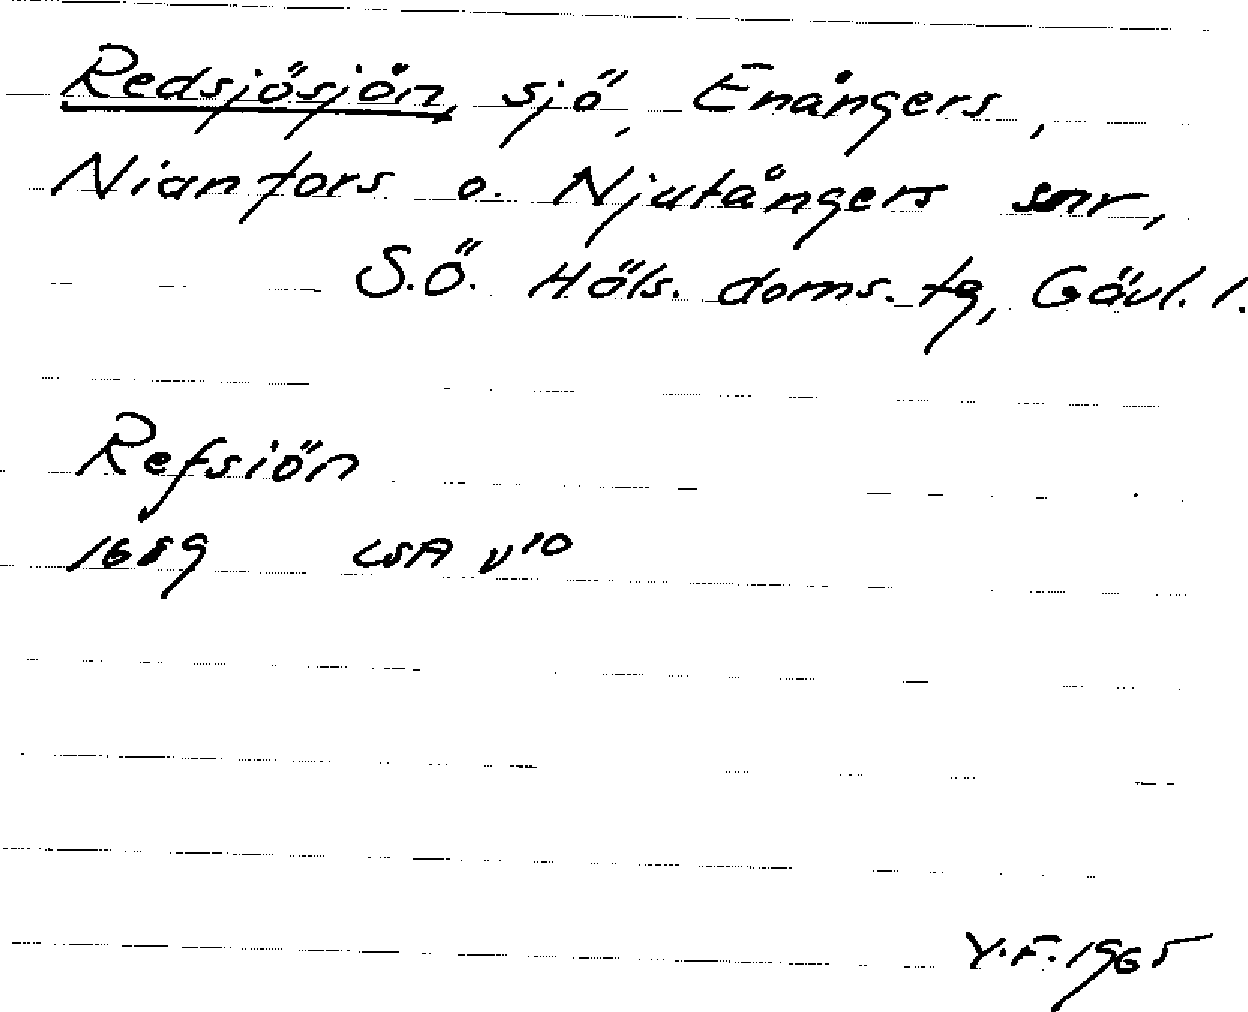 Redsjösjön, sjö, Enångers,
Nianfors o. Njutångers snr,
S.Ö. Häls. doms. tg, Gävl. l.
Refsiön
1689 LSA v¹⁰
Y.F. 1965